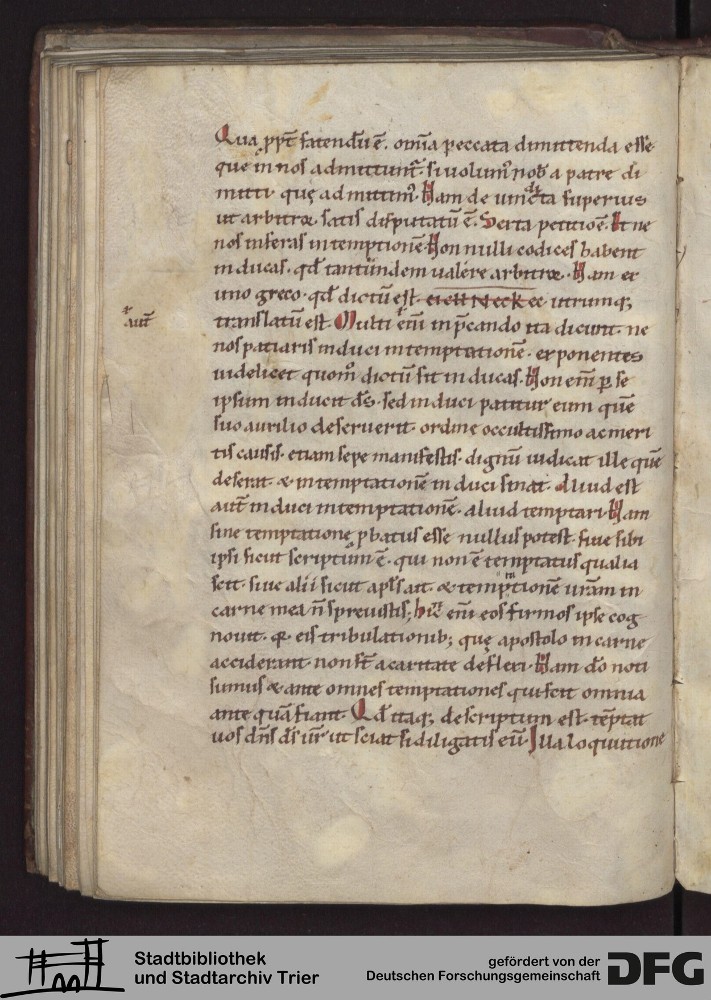 Qua ppt̄ fatendū ē. om̅a peccata dimittenda esse
que in nos admittunt̄. si volum᷒ nob a patre di
mitti quę admittim᷒. Nam de uindicta superius
ut arbitror. satis disputatū ē. Sexta petitio ē. Et ne
nos inferas in temptationē. Non nulli codices habent
inducas. qd̄ tantundem ualere arbitror. Nam ex
uno greco. qd̄ dictū est utrumq;
translatū est. Multi
aut̄
em̅ in p̄cando ita dicunt. ne
nos patiaris induci in temptationē. exponentes
uidelicet quom̊ dictū sit inducas. Non em̅ p se
ipsum inducit ds̄. sed induci patitur eum quē
suo auxilio deseruerit. ordine occultissimo ac meri
tis causis. etiam sepe manifestis. dignū iudicat ille quē
deserat. & in temptationē induci sinat. Aliud est
aut̄ induci in temptationē. aliud temptari. Nam
sine temptatione pbatus esse nullus potest. siue sibi
ipsi sicut scriptum ē. qui non ē temptatus qualia
scit. siue alii sicut apl̄s ait. & temptionē ur̄am in
carne mea n̄ spreuistis; hinc em̅ eos firmos ipse cog
nouit. qd eis tribulationib; quę apostolo in carne
acciderant. non st̄ a caritate deflexi. Nam dō noti
sumus & ante omnes temptationes qui scit omnia
ante quā fiant. Qd̄ itaq; descriptum est. tēptat
uos dn̄s ds̄ ur̄ ut sciat si diligatis eū. Illa loquutione
Stadtbibliothek
und Stadtarchiv Trier
gefördert von der
Deutschen Forschungsgemeinschaft
DFG